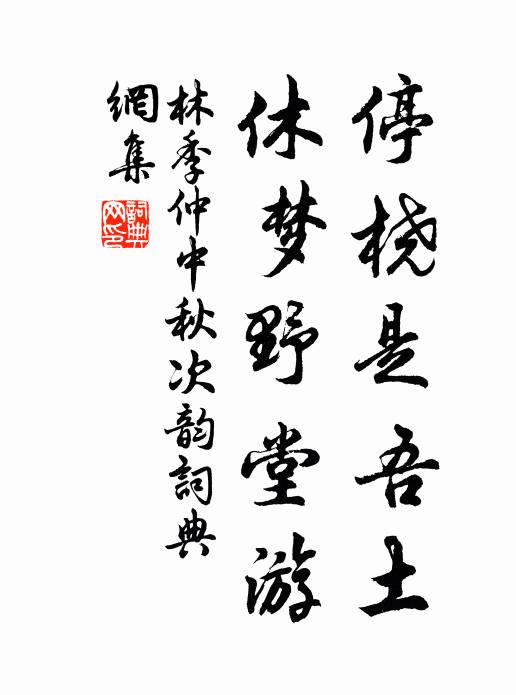 停桡是吾土
休梦野堂游
林季仲中秋次韵詞典
網集
詞典網印